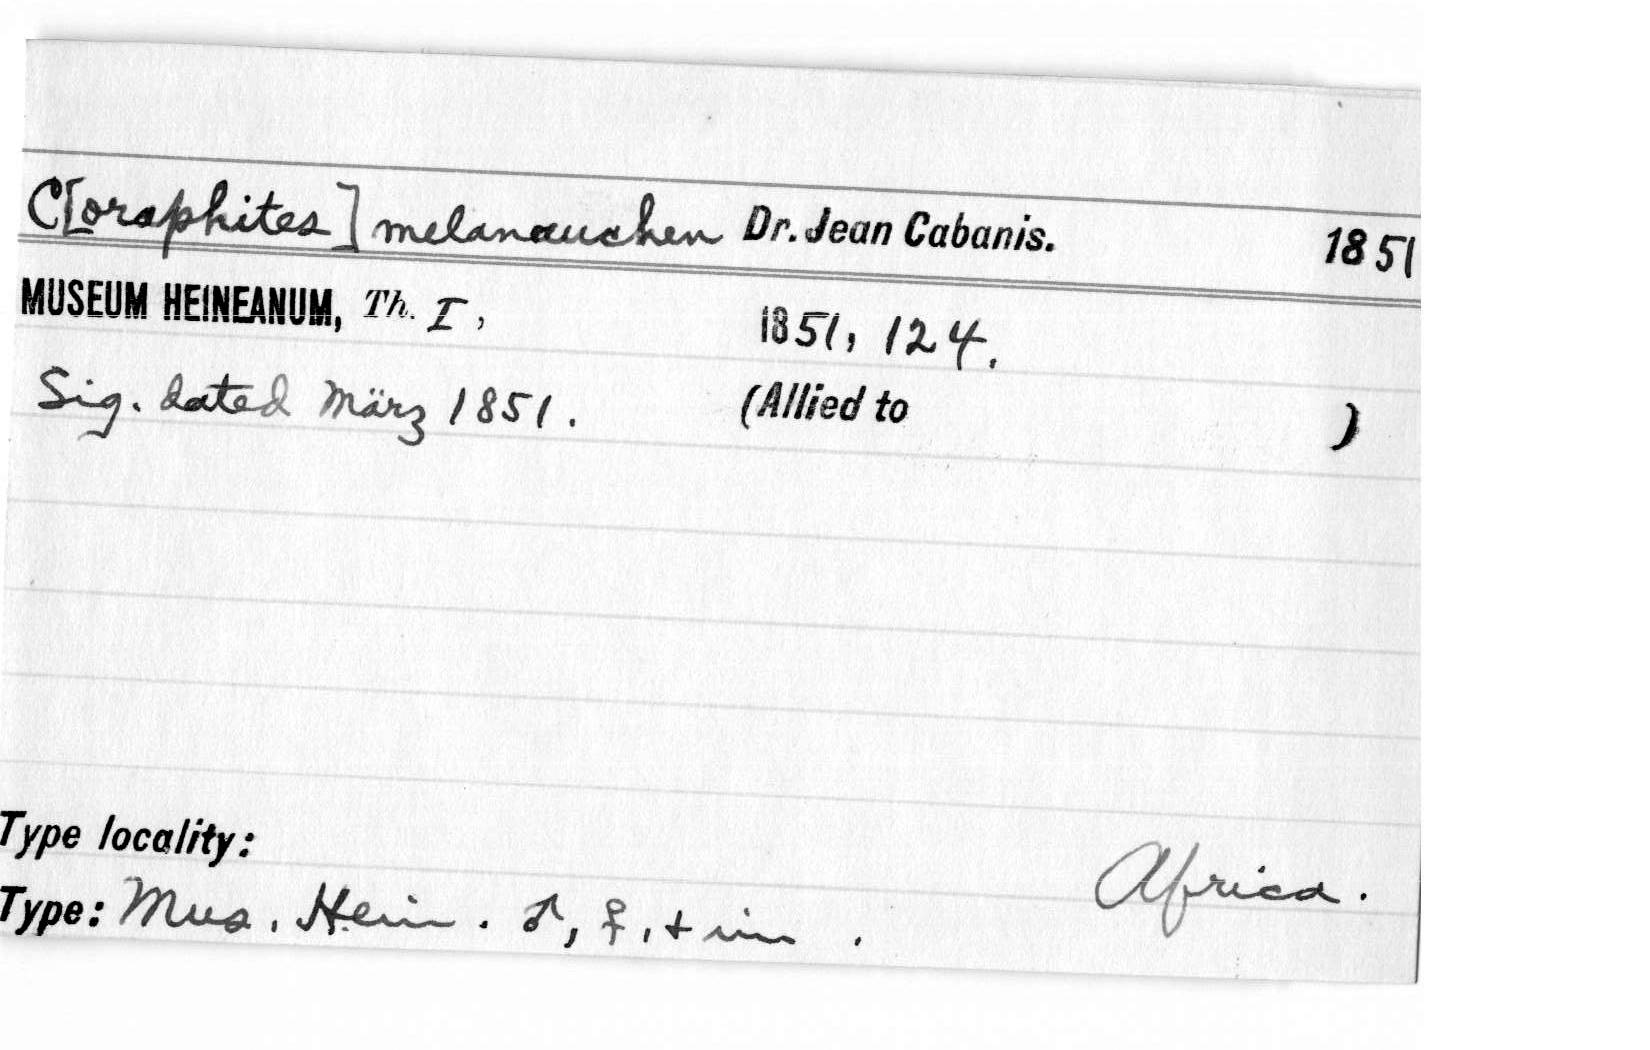 C[oraphites] melanauchen Dr. Jean Cabanis. 1851
MUSEUM HEINEANUM, Th. I, 1851, 124.
Sig. dated März 1851. (Allied to )
Type locality: Africa.
Type: Mus. Hein. ♂, ♀, + im .